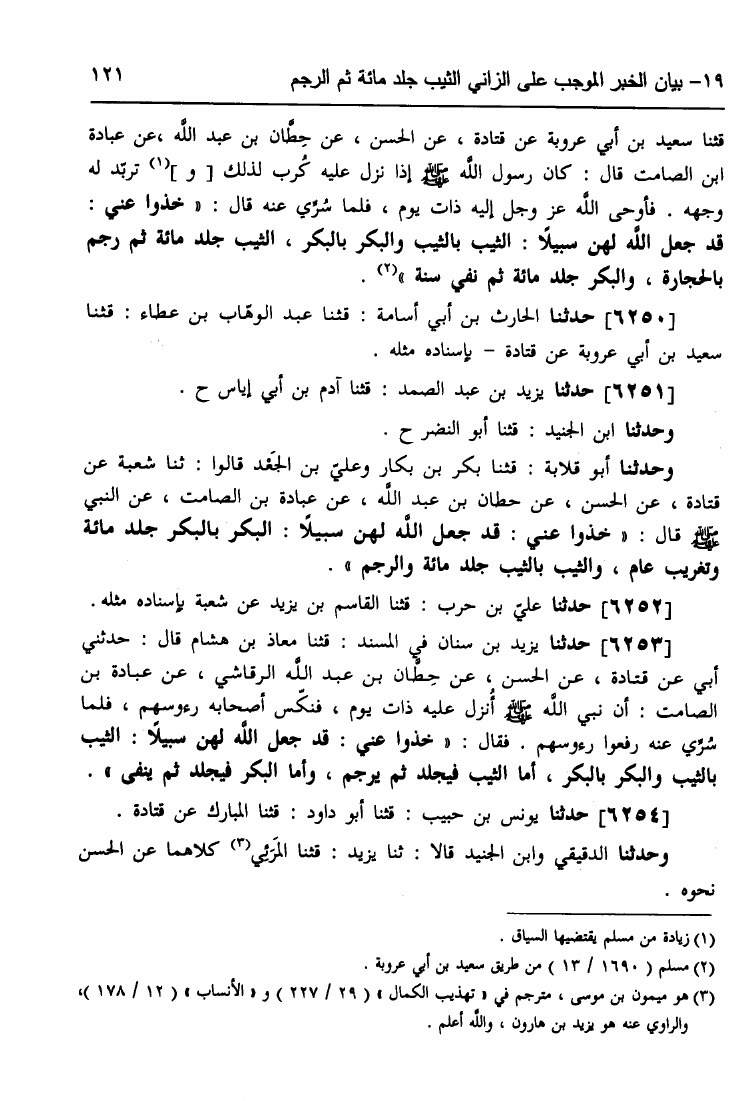 ١٩- بيان الخبر الموجب على الزاني الثيب جلد مائة ثم الرجم ١٢١
قثنا سعيد بن أبي عروبة عن قتادة ، عن الحسن ، عن حِطَّان بن عبد اللَّه ،عن عبادة
ابن الصامت قال : كان رسول اللَّه ﷺ إذا نزل عليه كُرب لذلك [ و ](١) تربّد له
وجهه . فأوحى اللَّه عز وجل إليه ذات يوم ، فلما سُرِّي عنه قال : « خذوا عني :
قد جعل اللَّه لهن سبيلًا : الثيب بالثيب والبكر بالبكر ، الثيب جلد مائة ثم رجم
بالحجارة ، والبكر جلد مائة ثم نفي سنة »(٢) .
[٦٢٥٠] حدثنا الحارث بن أبي أسامة : قثنا عبد الوهّاب بن عطاء : قثنا
سعيد بن أبي عروبة عن قتادة – بإسناده مثله .
[٦٢٥١] حدثنا يزيد بن عبد الصمد : قثنا آدم بن أبي إياس ح .
وحدثنا ابن الجنيد : قثنا أبو النضر ح .
وحدثنا أبو قلابة : قثنا بكر بن بكار وعليّ بن الجَعْد قالوا : ثنا شعبة عن
قتادة ، عن الحسن ، عن حطان بن عبد اللَّه ، عن عبادة بن الصامت ، عن النبي
ﷺ قال : « خذوا عني : قد جعل اللَّه لهن سبيلًا : البكر بالبكر جلد مائة
وتغريب عام ، والثيب بالثيب جلد مائة والرجم » .
[٦٢٥٢] حدثنا عليّ بن حرب : قثنا القاسم بن يزيد عن شعبة بإسناده مثله.
[٦٢٥٣] حدثنا يزيد بن سنان في المسند : قثنا معاذ بن هشام قال : حدثني
أبي عن قتادة ، عن الحسن ، عن حِطَّان بن عبد اللَّه الرقاشي ، عن عبادة بن
الصامت : أن نبي اللَّه ﷺ أُنزل عليه ذات يوم ، فنكّس أصحابه رءوسهم ، فلما
سُرِّي عنه رفعوا رءوسهم . فقال : « خذوا عني : قد جعل اللَّه لهن سبيلًا : الثيب
بالثيب والبكر بالبكر ، أما الثيب فيجلد ثم يرجم ، وأما البكر فيجلد ثم ينفى » .
[٦٢٥٤] حدثنا يونس بن حبيب : قثنا أبو داود : قثنا المبارك عن قتادة .
وحدثنا الدقيقي وابن الجنيد قالا : ثنا يزيد : قثنا المَرَئِي(٣) كلاهما عن الحسن
نحوه .
(١) زيادة من مسلم يقتضيها السياق .
(٢) مسلم ( ١٦٩٠ / ١٣ ) من طريق سعيد بن أبي عروبة .
(٣) هو ميمون بن موسى ، مترجم في « تهذيب الكمال » ( ٢٩ / ٢٢٧ ) و « الأنساب » ( ١٢ / ١٧٨ )،
والراوي عنه هو يزيد بن هارون ، واللَّه أعلم .